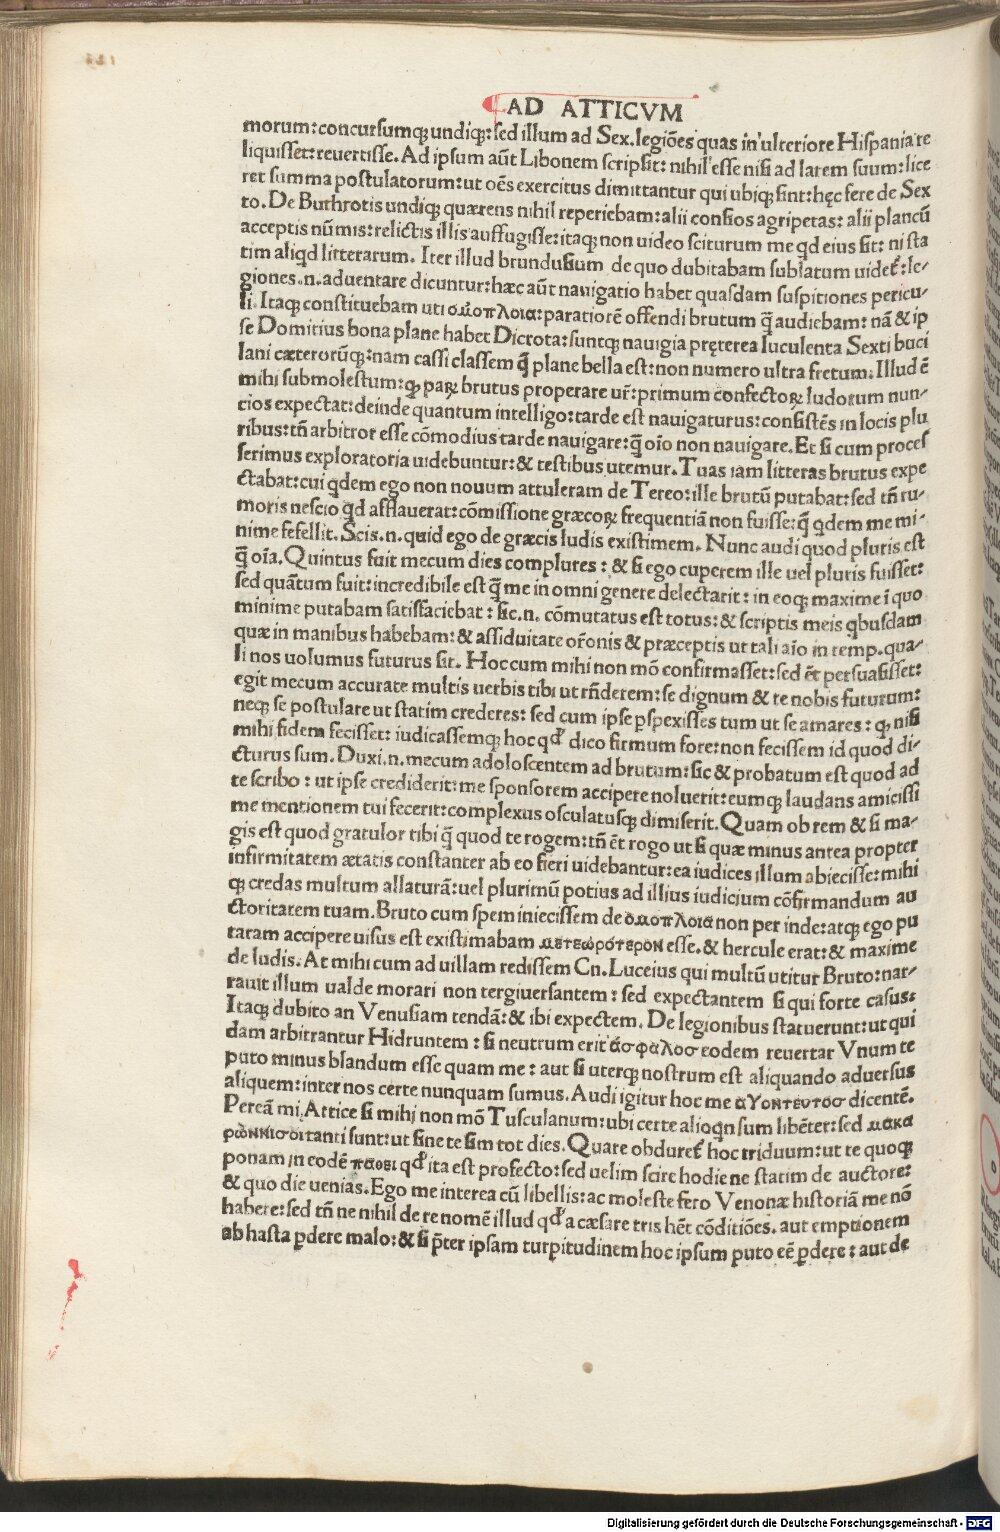 AD ATTICVM
morum: concursumq; undiq;: sed illum ad Sex. legiões quas in ulteriore Hispania re
liquisset: reuertisse. Ad ipsum aūt Libonem scripsit: nihil esse nisi ad larem suum: lice
ret summa postulatorum: ut oēs exercitus dimittantur qui ubiq; sint: hęc fere de Sex
to. De Buthrotis undiq; quærens nihil reperiebam: alii consios agripetas: alii plancū
acceptis nūmis: relictis illis auffugisse: itaq; non uideo sciturum me qd eius sit: ni sta
tim aliqd litterarum. Iter illud brundusium de quo dubitabam sublatum uidet̄: le-
giones .n. aduentare dicuntur: hæc aūt nauigatio habet quasdam suspitiones pericu-
li. Itaq; constituebam uti ομοπλοια: paratiorē offendi brutum q̄ audiebam: nā & ip
se Domitius bona plane habet Dicrota: suntq; nauigia pręterea luculenta Sexti buci
lani cæterorūq;: nam cassi classem q̄ plane bella est: non numero ultra fretum. Illud ē
mihi submolestum: q; paꝝ brutus properare ur̄: primum confectoꝝ ludorum nun-
cios expectat: deinde quantum intelligo: tarde est nauigaturus: consistēs in locis plu
ribus: tn̄ arbitror esse cōmodius tarde nauigare: q̄ oīo non nauigare. Et si cum proces
serimus exploratoria uidebuntur: & testibus utemur. Tuas iam litteras brutus expe
ctabat: cui qdem ego non nouum attuleram de Tereo: ille brutū putabat: sed tn̄ ru-
moris nescio qd afflauerat: cōmissione græcoꝝ frequentiā non fuisse: q̄ qdem me mi-
nime fefellit. Scis .n. quid ego de græcis ludis existimem. Nunc audi quod pluris est
q̄ oīa. Quintus fuit mecum dies complures: & si ego cuperem ille uel pluris fuisset:
sed quātum fuit: incredibile est q̄ me in omni genere delectarit: in eoq; maxime ī quo
minime putabam satisfaciebat: sic .n. cōmutatus est totus: & scriptis meis qbusdam
quæ in manibus habebam: & assiduitate or̄onis & præceptis ut tali aīo in remp. qua-
li nos uolumus futurus sit. Hoc cum mihi non mō confirmasset: sed ēt persuasisset:
egit mecum accurate multis uerbis tibi ut rn̄derem: se dignum & te nobis futurum:
neq; se postulare ut statim crederes: sed cum ipse pspexisses tum ut se amares: q; nisi
mihi fidem fecisset: iudicassemq; hoc qd̄ dico firmum fore: non fecissem id quod di-
cturus sum. Duxi .n. mecum adoloscentem ad brutum: sic & probatum est quod ad
te scribo: ut ipse crediderit: me sponsorem accipere noluerit: eumq; laudans amicissi
me mentionem tui fecerit: complexus osculatusq; dimiserit. Quam ob rem & si ma-
gis est quod gratulor tibi q̄ quod te rogem: tn̄ ēt rogo ut si quæ minus antea propter
infirmitatem ætatis constanter ab eo fieri uidebantur: ea iudices illum abiecisse: mihi
q; credas multum allaturā: uel plurimū potius ad illius iudicium cōfirmandum au
ctoritatem tuam. Bruto cum spem iniecissem de ομοπλοια non per inde: atq; ego pu
taram accipere uisus est existimabam μετεωρότερον esse. & hercule erat: & maxime
de ludis. At mihi cum ad uillam redissem Cn. Luceius qui multū utitur Bruto: nar-
rauit illum ualde morari non tergiuersantem: sed expectantem si qui forte casus:
Itaq; dubito an Venusiam tendā: & ibi expectem. De legionibus statuerunt: ut qui
dam arbitrantur Hidruntem: si neutrum erit ἀσφαλοσ eodem reuertar Vnum te
puto minus blandum esse quam me: aut si uterq; nostrum est aliquando aduersus
aliquem: inter nos certe nunquam sumus. Audi igitur hoc me αγοντευτοσ dicentē.
Pereā mi Attice si mihi non mō Tusculanum: ubi certe alioqn sum libēter: sed μακα
ρωννισοι tanti sunt: ut sine te sim tot dies. Quare obduret̄ hoc triduum: ut te quoq;
ponam in eodē παθει qd̄ ita est profecto: sed uelim scire hodiene statim de auctore:
& quo die uenias. Ego me interea cū libellis: ac moleste fero Venonæ historiā me nō
habere: sed tn̄ ne nihil de re nomē illud qd̄ a cæsare tris hēt cōditiōes. aut emptionem
ab hasta pdere malo: & si p̄ter ipsam turpitudinem hoc ipsum puto eē pdere: aut de
Digitalisierung gefördert durch die Deutsche Forschungsgemeinschaft - DFG